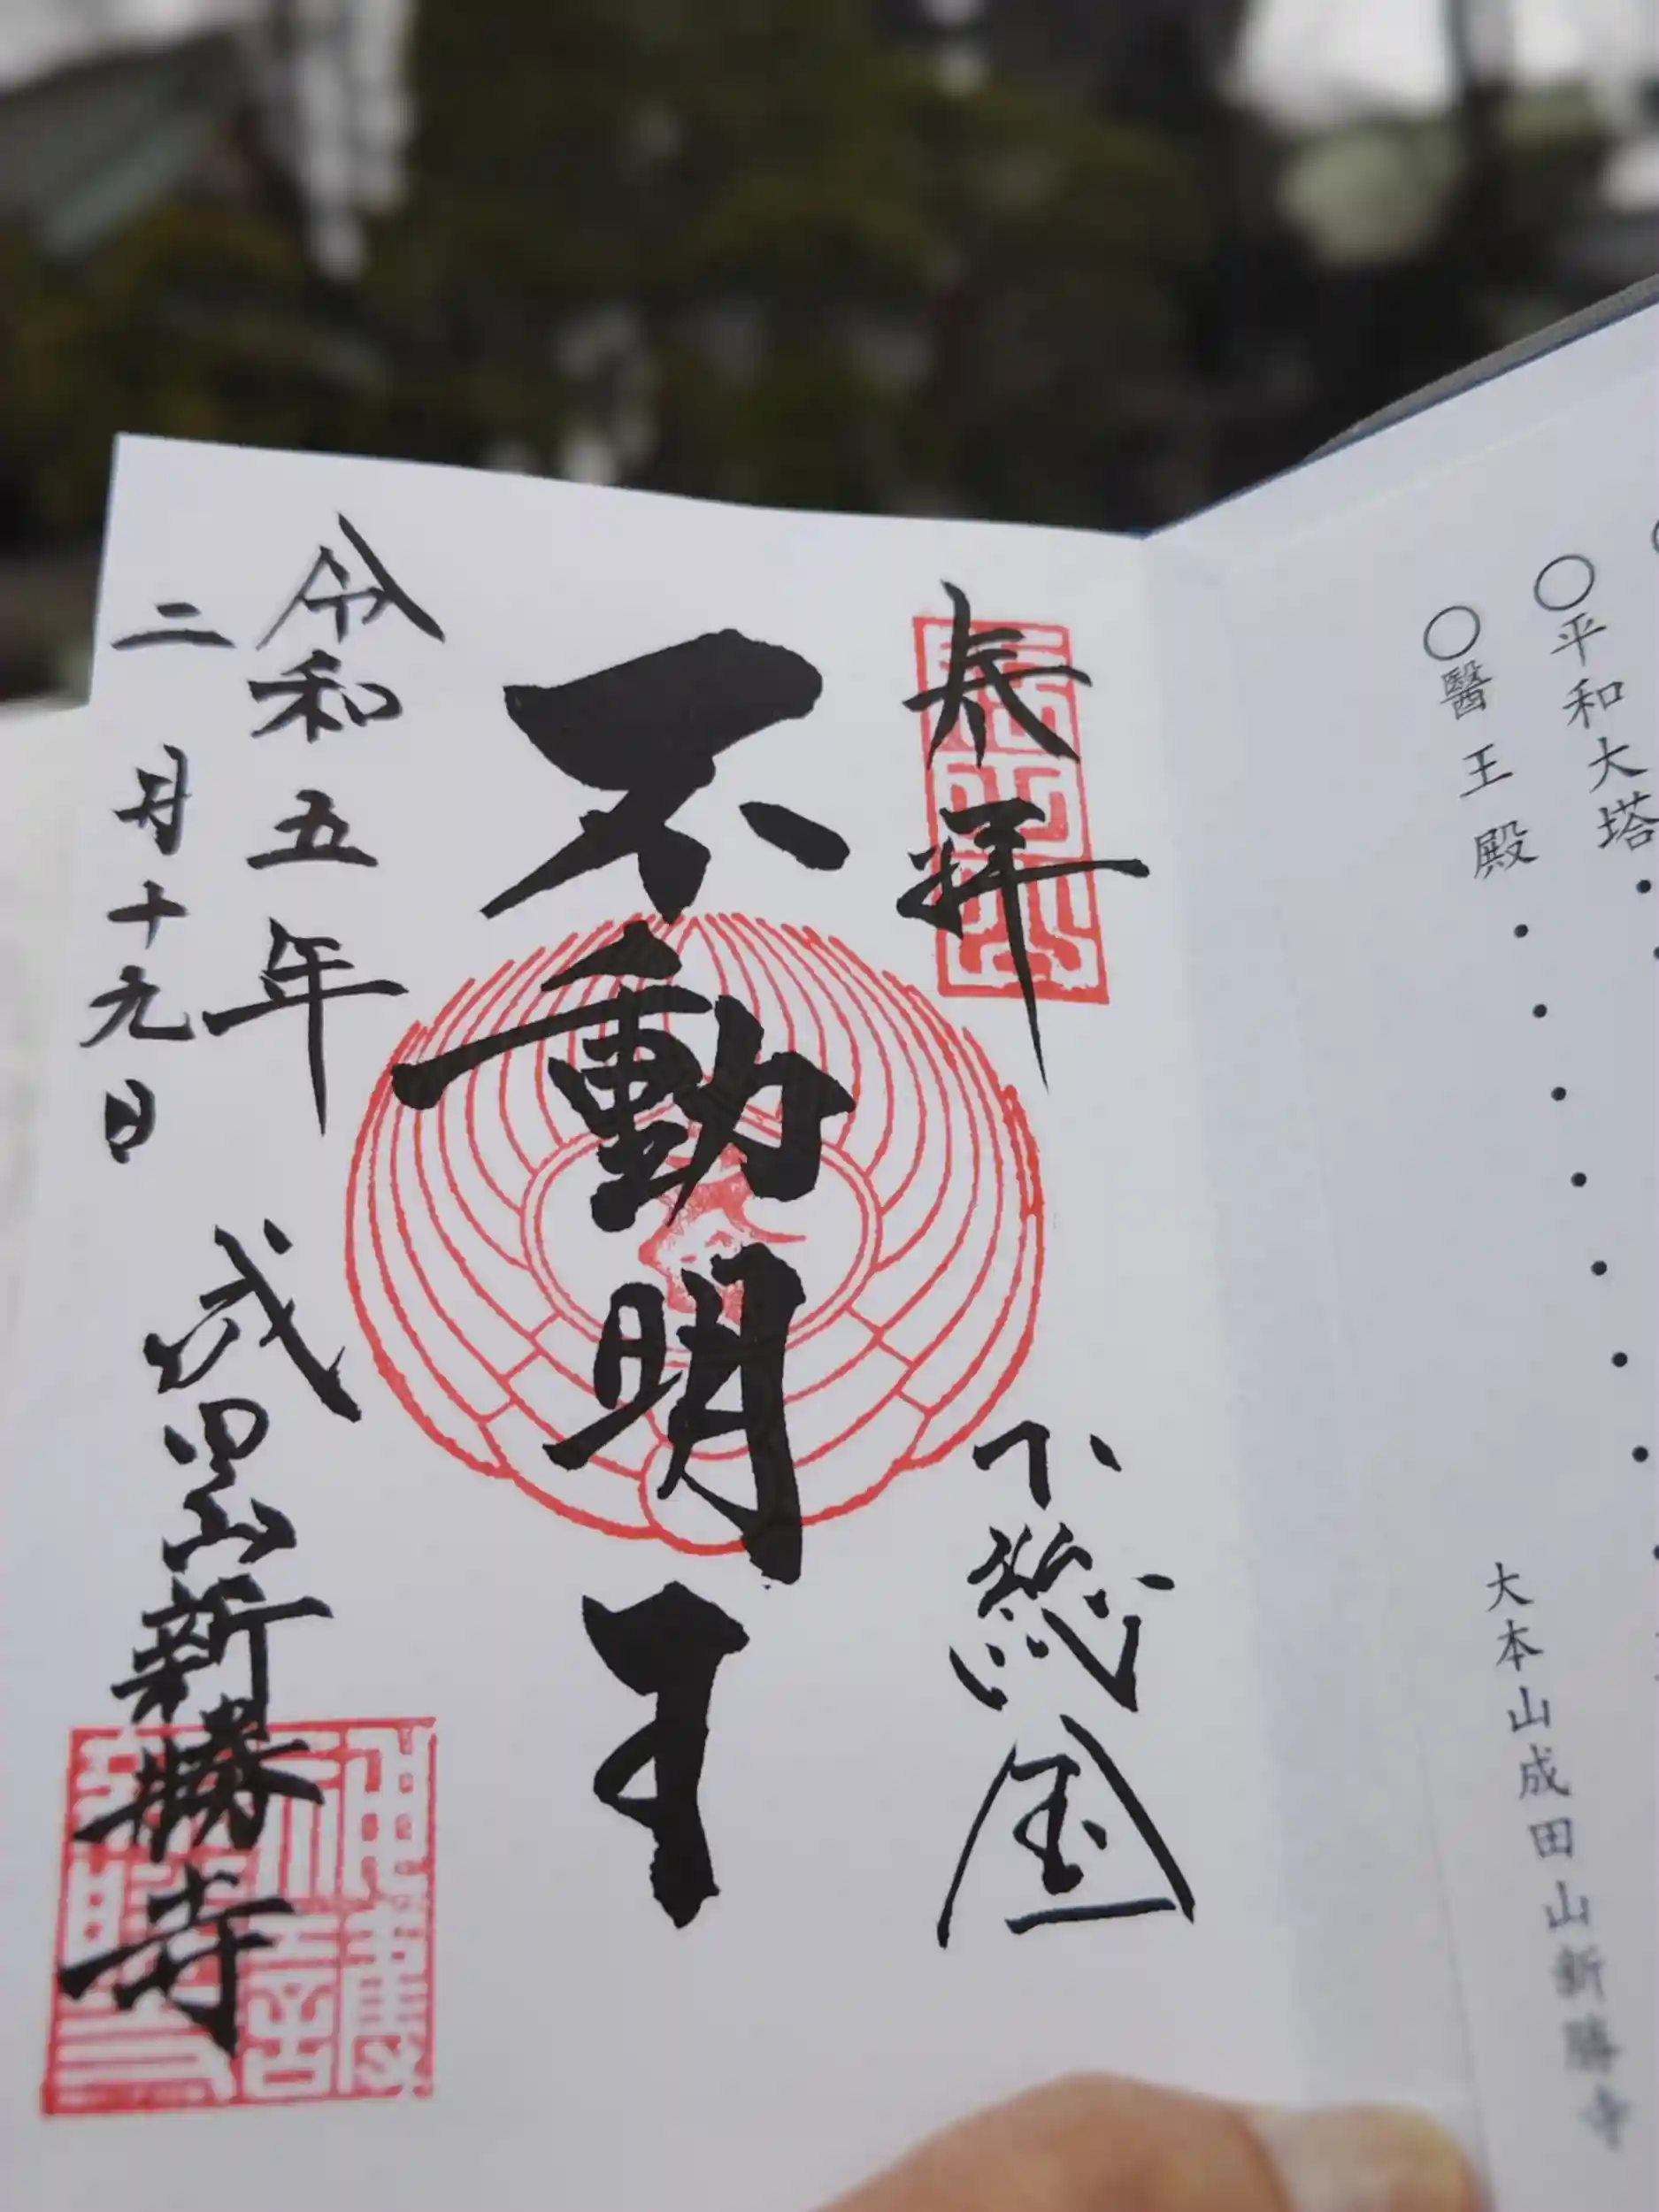 平和大塔・
醫王殿・・・・・・・
大本山成田山新勝寺
奉拝
下総国
不動明王
令和五年
二月十九日
成田山新勝寺